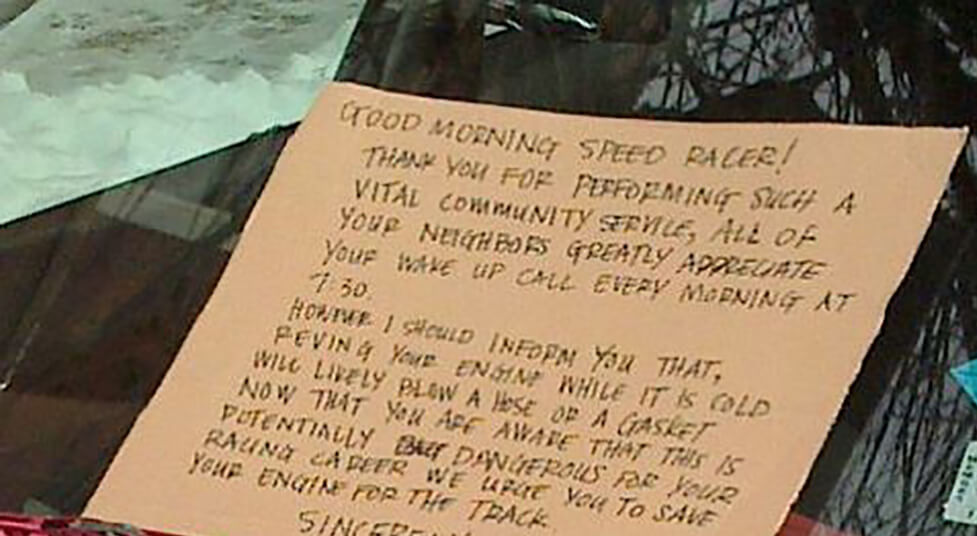 GOOD MORNING SPEED RACER!
THANK YOU FOR PERFORMING SUCH A
VITAL COMMUNITY SERVICE, ALL OF
YOUR NEIGHBORS GREATLY APPRECIATE
YOUR WAKE UP CALL EVERY MORNING AT
7:30.
HOWEVER I SHOULD INFORM YOU THAT,
REVING YOUR ENGINE WHILE IT IS COLD
WILL LIKELY BLOW A HOSE OR A GASKET
NOW THAT YOU ARE AWARE THAT THIS IS
POTENTIALLY DANGEROUS FOR YOUR
RACING CAREER WE URGE YOU TO SAVE
YOUR ENGINE FOR THE TRACK.